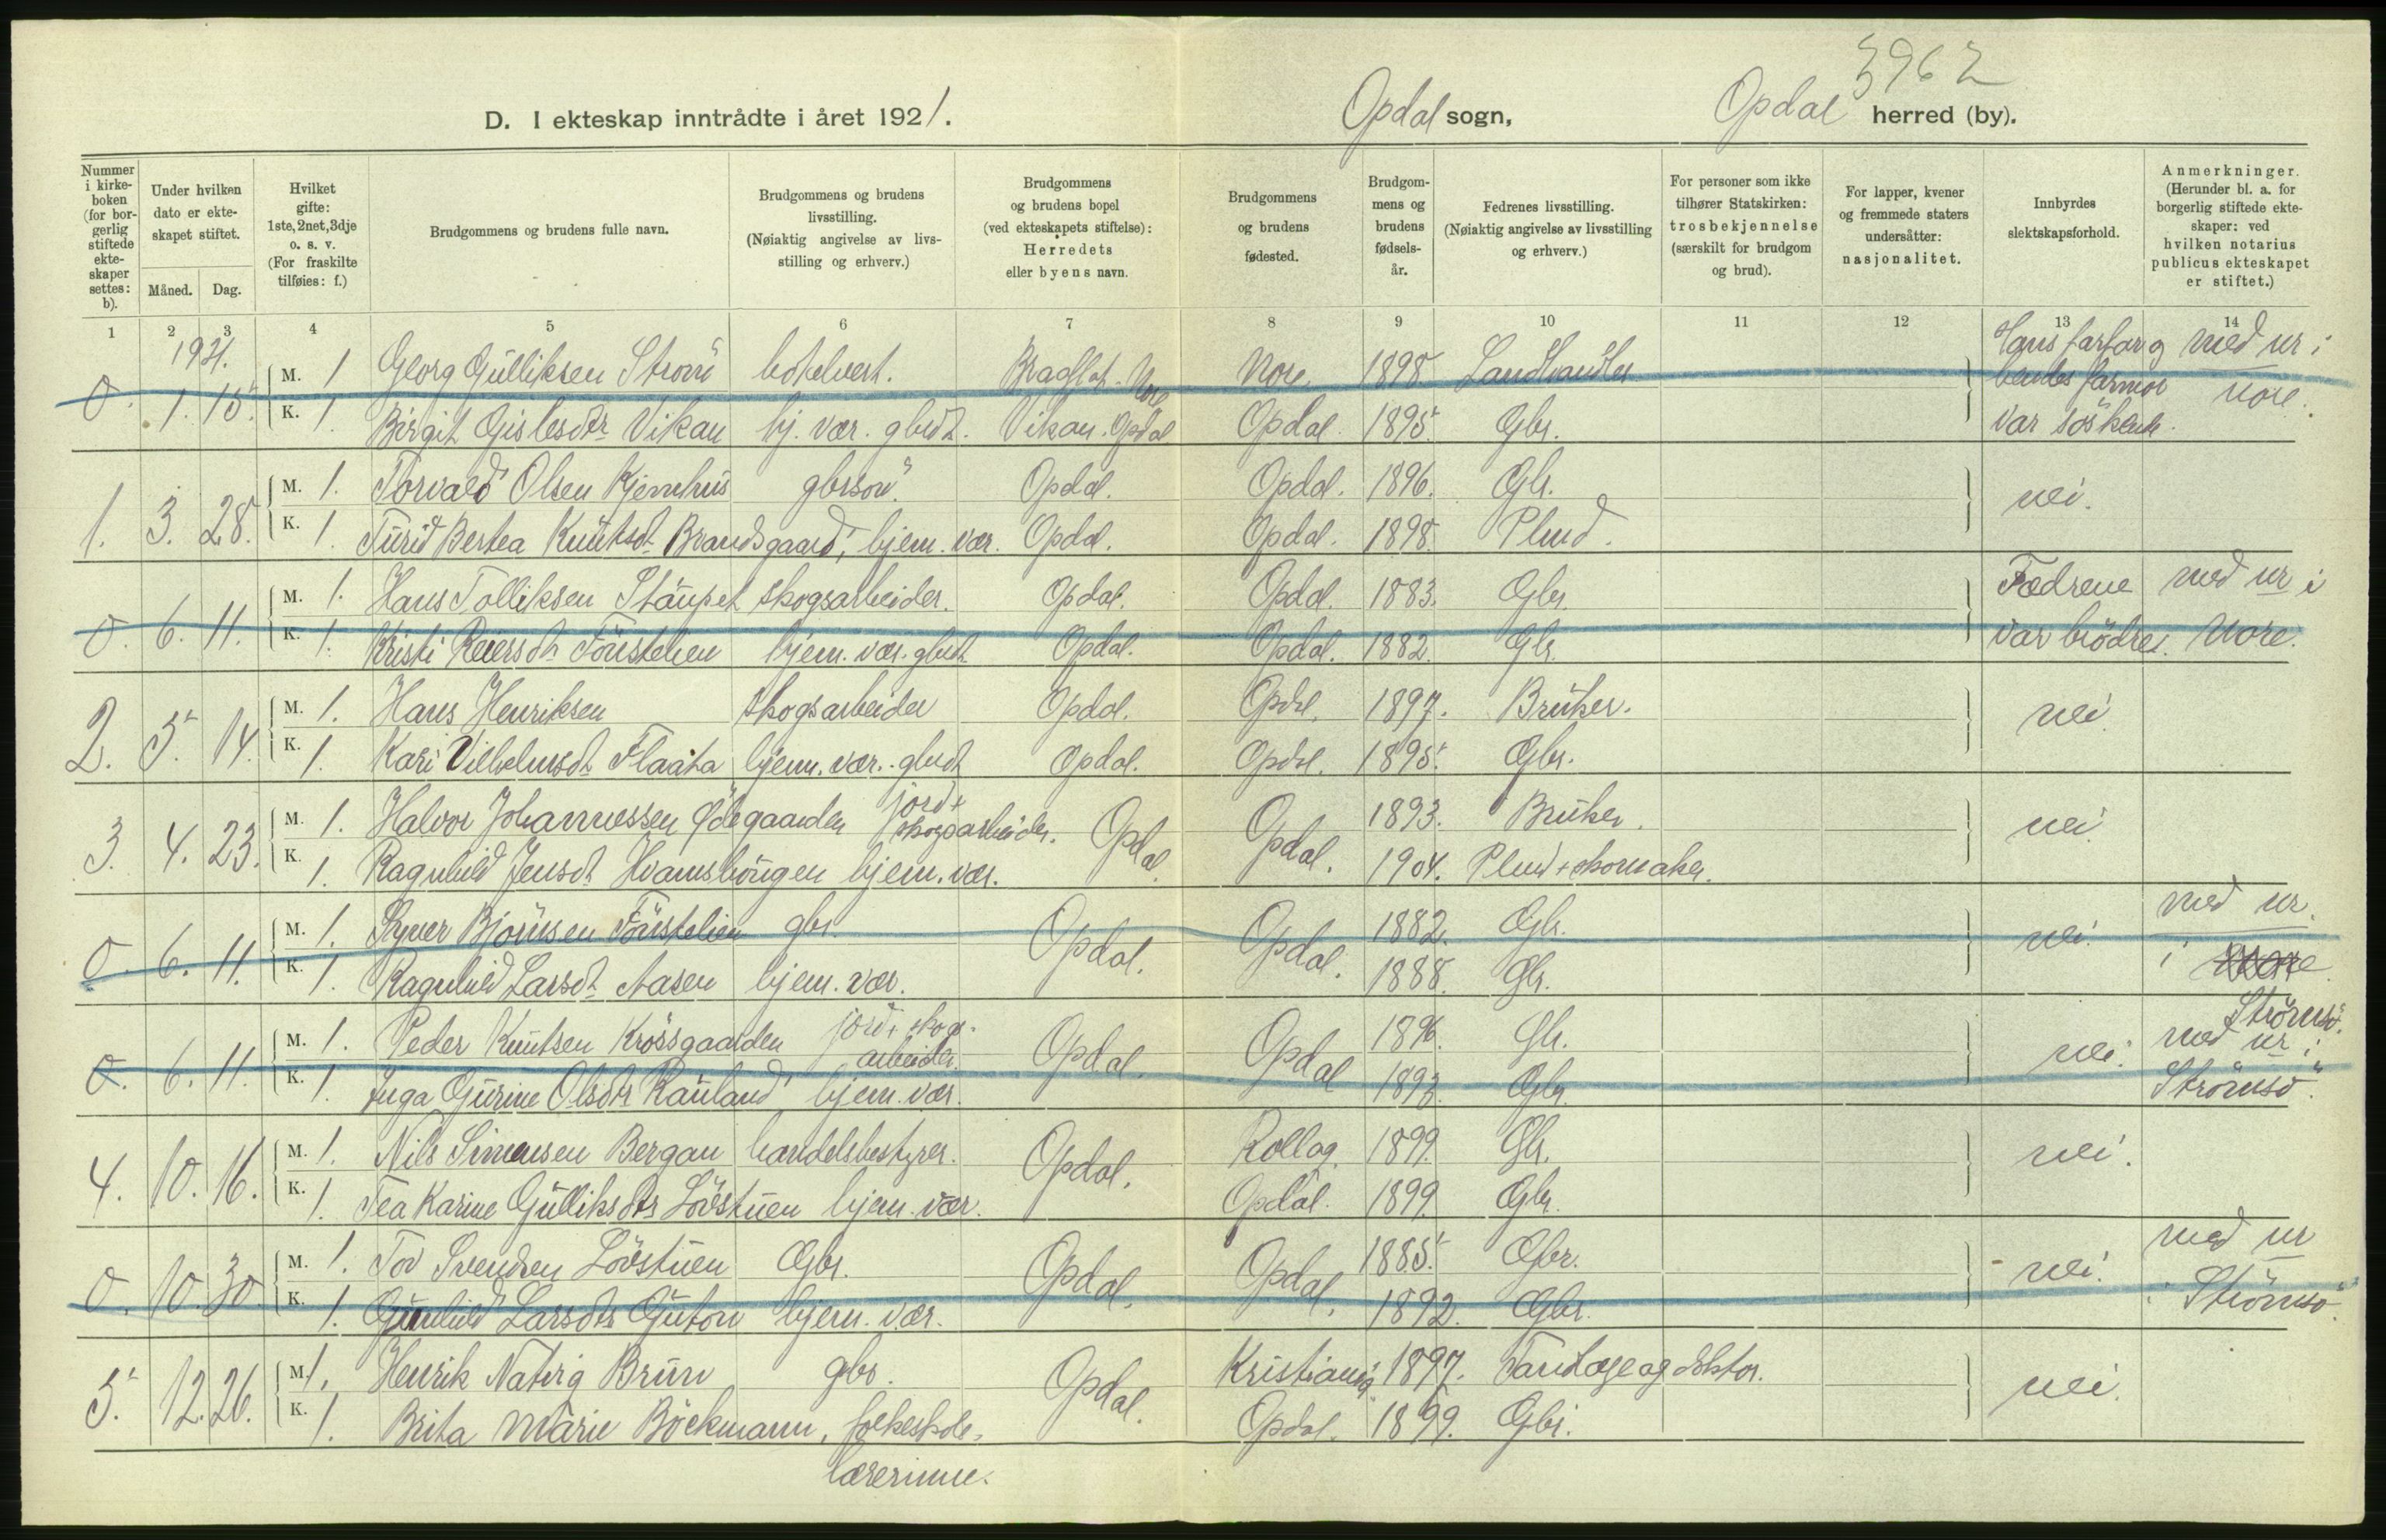 3962
D. I ekteskap inntrådte i året 1921.
Opdal sogn, Opdal herred (by).
Nummer i kirkeboken (for borgerlig stiftede ekteskaper settes: b).
Under hvilken dato er ekteskapet stiftet.
Måned. Dag.
Hvilket gifte: 1ste, 2net, 3dje o. s. v. (For fraskilte tilføies: f.)
Brudgommens og brudens fulle navn.
Brudgommens og brudens livsstilling. (Nøiaktig angivelse av livsstilling og erhverv.)
Brudgommens og brudens bopel (ved ekteskapets stiftelse): Herredets eller byens navn.
Brudgommens og brudens fødested.
Brudgommens og brudens fødselsår.
Fedrenes livsstilling. (Nøiaktig angivelse av livsstilling og erhverv.)
For personer som ikke tilhører Statskirken: trosbekjennelse (særskilt for brudgom og brud).
For lapper, kvener og fremmede staters undersåtter: nasjonalitet.
Innbyrdes slektskapsforhold.
Anmerkninger. (Herunder bl. a. for borgerlig stiftede ekteskaper: ved hvilken notarius publicus ekteskapet er stiftet.)
1 2 3 4 5 6 7 8 9 10 11 12 13 14
1921.
0. 1. 15. M. 1 Georg Gulliksen Strøm hotelvert. Bragflat. Nore Nore 1898. Landhandler Hans farfar og hendes farmor var søskende. med ur i Nore.
K. 1. Birgit Gislesdtr Vikan hj. vær. gbrdt. Vikan. Opdal Opdal. 1895. Gbr.
1. 3. 28. M. 1. Torvald Olsen Kjemhus gbrsøn. Opdal. Opdal. 1896. Gbr. nei.
K. 1. Turid Bertea Knutsdt. Brandsgaard, hjem. vær. Opdal. Opdal. 1898. Plmd.
0. 6. 11. M. 1. Hans Tolliksen Staupet skogsarbeider. Opdal. Opdal. 1883. Gbr. Fædrene var brødre. med ur i Nore.
K. 1. Kristi Reiersdt Fønstelien hjem. vær. gbrdt Opdal. Opdal. 1882. Gbr.
2. 5. 14. M. 1. Hans Henriksen skogsarbeider Opdal. Opdal. 1897. Bruker. nei.
K. 1. Kari Vilhelmsdt Flaata hjem. vær. gbrdt Opdal. Opdal. 1895. Gbr.
3. 4. 23. M. 1. Halvor Johannessen Ødegaarden jord + skogsarbeider. Opdal. Opdal. 1893. Bruker. nei.
K. 1. Ragnhild Jensdt Hvamsbøngen hjem. vær. 1904. Plmd + skomaker.
0. 6. 11. M. 1. Syver Bjørnsen Fønstelien gbr. Opdal. Opdal. 1882. Gbr. nei. med ur. i Nore Strømsø.
K. 1. Ragnhild Larsdt. Aasen hjem. vær. 1888. Gbr.
0. 6. 11. M. 1. Peder Knutsen Krossgaarden jord + skogsarbeider. Opdal. Opdal 1896. Gbr. nei. med ur i Strømsø.
K. 1. Inga Gurine Olsdtr Rauland hjem. vær. 1893. Gbr.
4. 10. 16. M. 1. Nils Simensen Bergan handelsbestyrer. Opdal. Rollag. 1899. Gbr. nei.
K. 1. Tea Karine Gulliksdtr Løvstuen hjem. vær. Opdal. 1899. Gbr.
0. 10. 30. M. 1. Tov Svendsen Løvstuen Gbr. Opdal. Opdal. 1885. Gbr. nei. med ur i Strømsø.
K. 1. Gunhild Larsdtr Guton hjem. vær. 1892. Gbr.
5. 12. 26. M. 1. Henrik Natvig Brun gbr. Opdal. Kristiania 1897. Tandlæge og doktor. nei.
K. 1. Brita Marie Böckmann, folkeskolelærerinne. Opdal. 1899. Gbr.